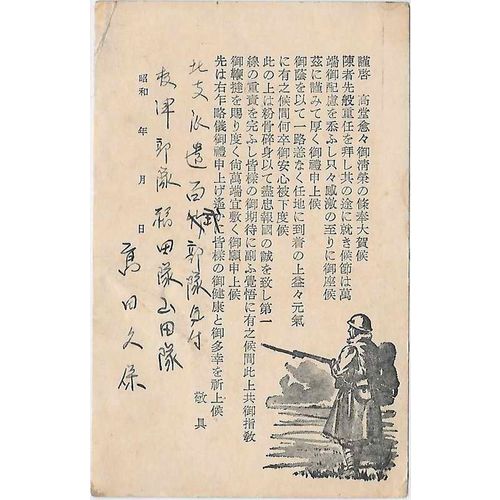 謹啓　高堂愈々御清榮の條奉大賀候
陳者先般重任を拜し其の途に就き候節は萬
端御配慮を忝ふし只々感激の至りに御座候
茲に謹みて厚く御禮申上候
御蔭を以て一路恙なく任地に到着の上益々元氣
に有之候間何卒御安心被下度候
此の上は粉骨碎身以て盡忠報國の誠を致し第一
線の重責を完ふし皆樣の御期待に副ふ覺悟に有之候間此上共御指敎
御鞭撻を賜り度く尙萬端宜敷く御願申上候
先は右乍略儀御禮申上げ遙に皆樣の御健康と御多幸を祈上候
敬具
北支派遣百武部隊気付
昭和　年　月　日
枝津部隊稻田隊山田隊
髙田久保